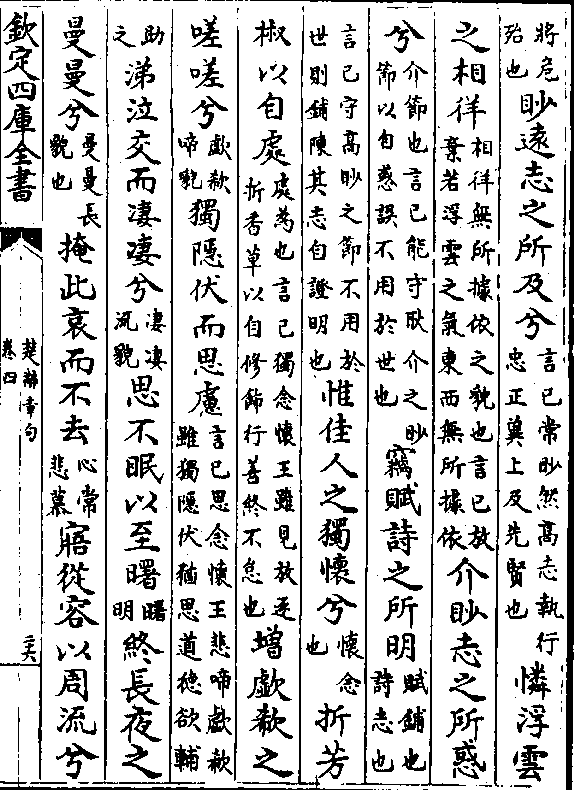 將危殆也眇遠志之所及兮言已常眇然高志執行忠正冀上及先賢也憐浮雲
之相佯相佯無所據依之貌也言已放棄若浮雲之氣東西無所據依介眇志之所惑
兮介節也言已能守耿介之眇節以自惑誤不用於世也竊賦詩之所明賦鋪也詩志也
言已守高眇之節不用於世則鋪陳其志自證明也惟佳人之獨懷兮懷念也折芳
椒以自處處為也言已獨念懷王雖見放逐折香草以自修飾行善終不怠也增歔欷之
嗟嗟兮歔欷啼貌獨隱伏而思慮言已思念懷王悲啼歔欷雖獨隱伏猶思道德欲輔
助之涕泣交而凄凄兮凄凄流貌思不眠以至曙曙明終長夜之
曼曼兮曼曼長貌也掩此哀而不去心常悲慕寤從容以周流兮
欽定四庫全書
楚辭章句
卷四
二六